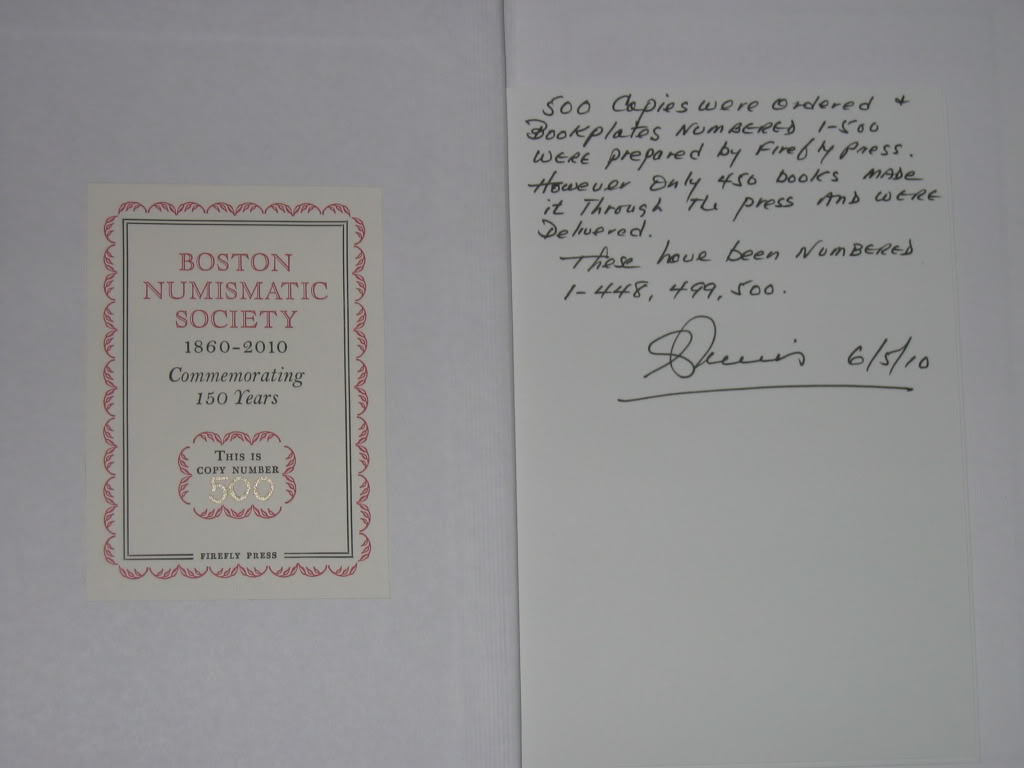 BOSTON
NUMISMATIC
SOCIETY
1860-2010
Commemorating
150 Years
THIS IS
COPY NUMBER
500
FIREFLY PRESS
500 Copies were ordered +
Bookplates NUMBERED 1-500
WERE prepared by Firefly Press.
However Only 450 books MADE
it Through The press AND WERE
Delivered.
These have been NUMBERED
1-448, 499, 500.
6/5/10